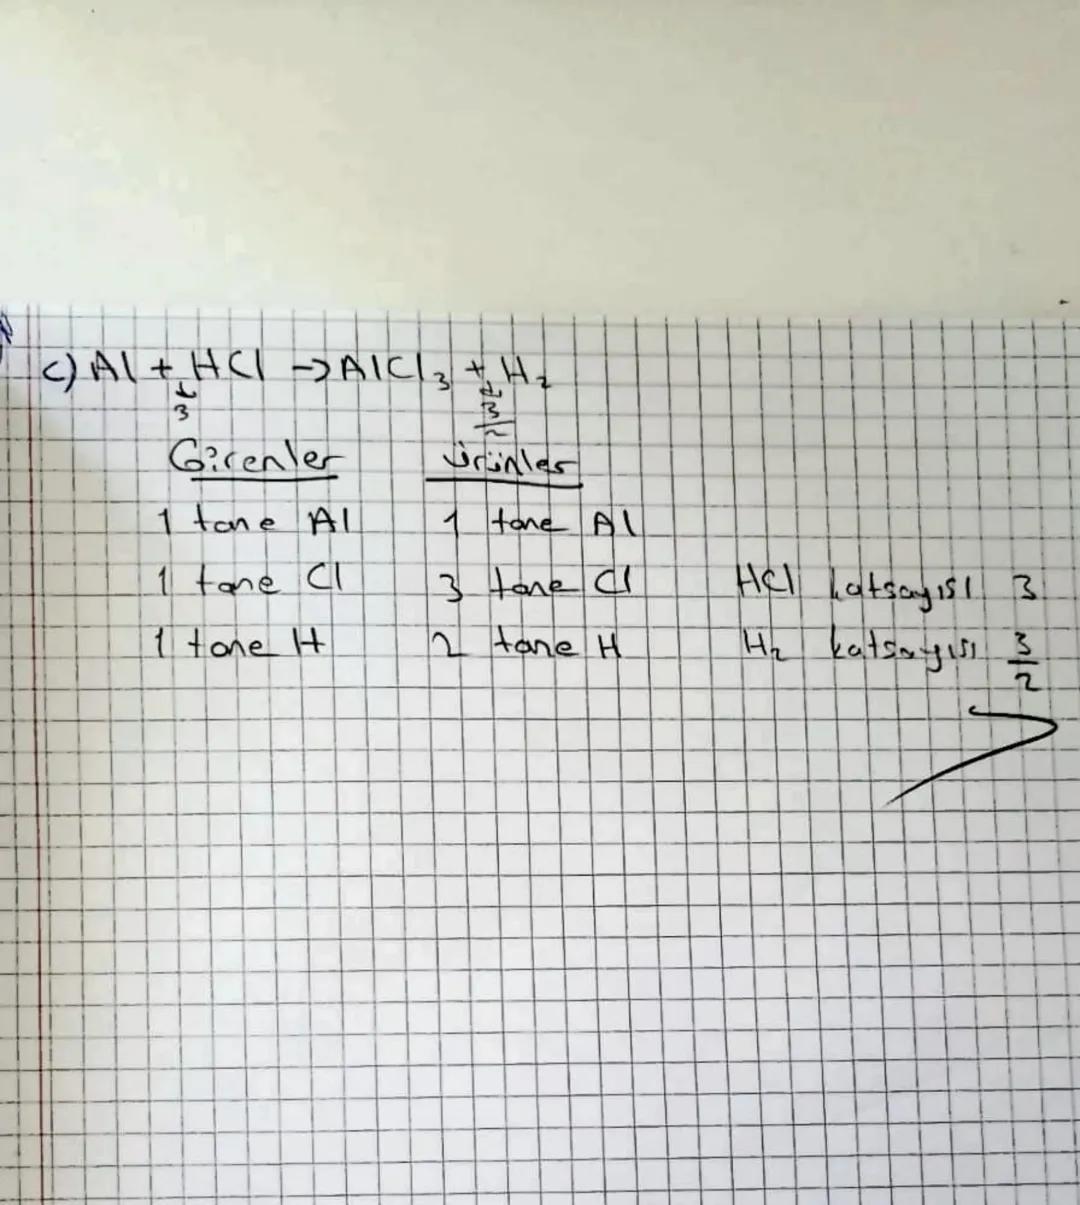 c) Al + HCl → AlCl₃ + H₂
3 3/2
Girenler ürünler
1 tane Al 1 tane Al
1 tane Cl 3 tane Cl HCl katsayısı 3
1 tane H 2 tane H H₂ katsayısı 3/2